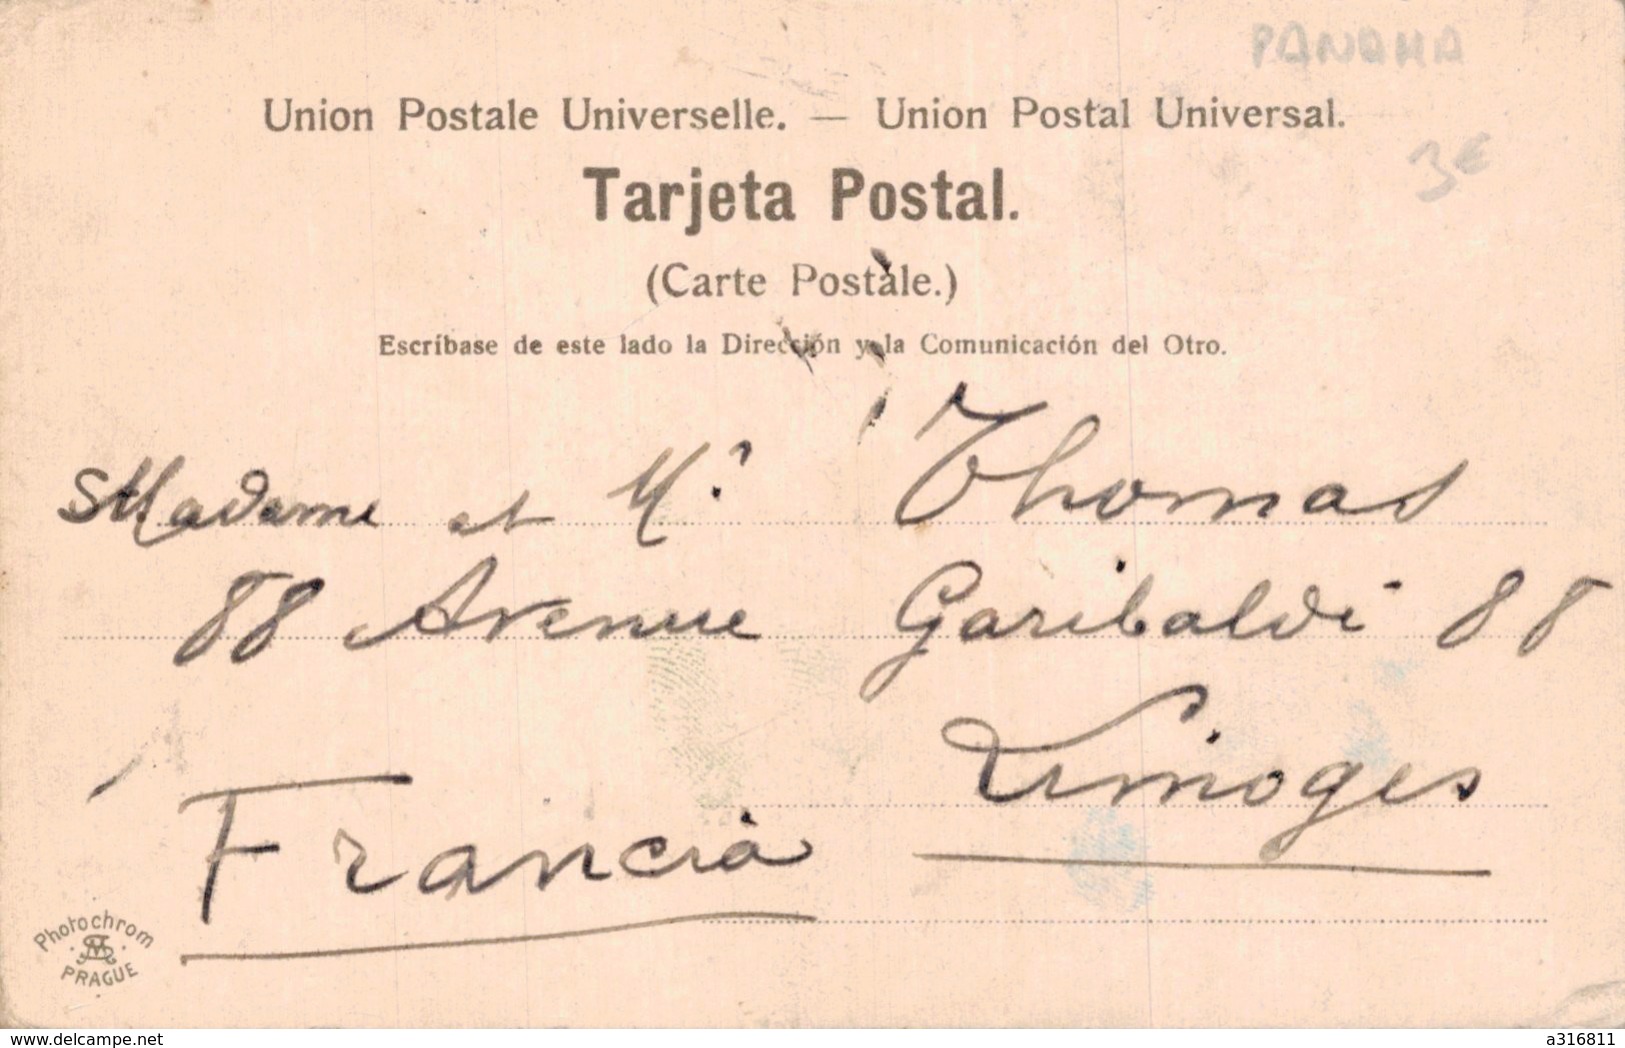 PANAMA
Union Postale Universelle. — Union Postal Universal.
3€
Tarjeta Postal.
(Carte Postale.)
Escríbase de este lado la Dirección y la Comunicación del Otro.
Madame et Mr Thomas
88 Avenue Garibaldi 88
Limoges
Francia
Photochrom
PRAGUE
www.delcampe.net
a316811